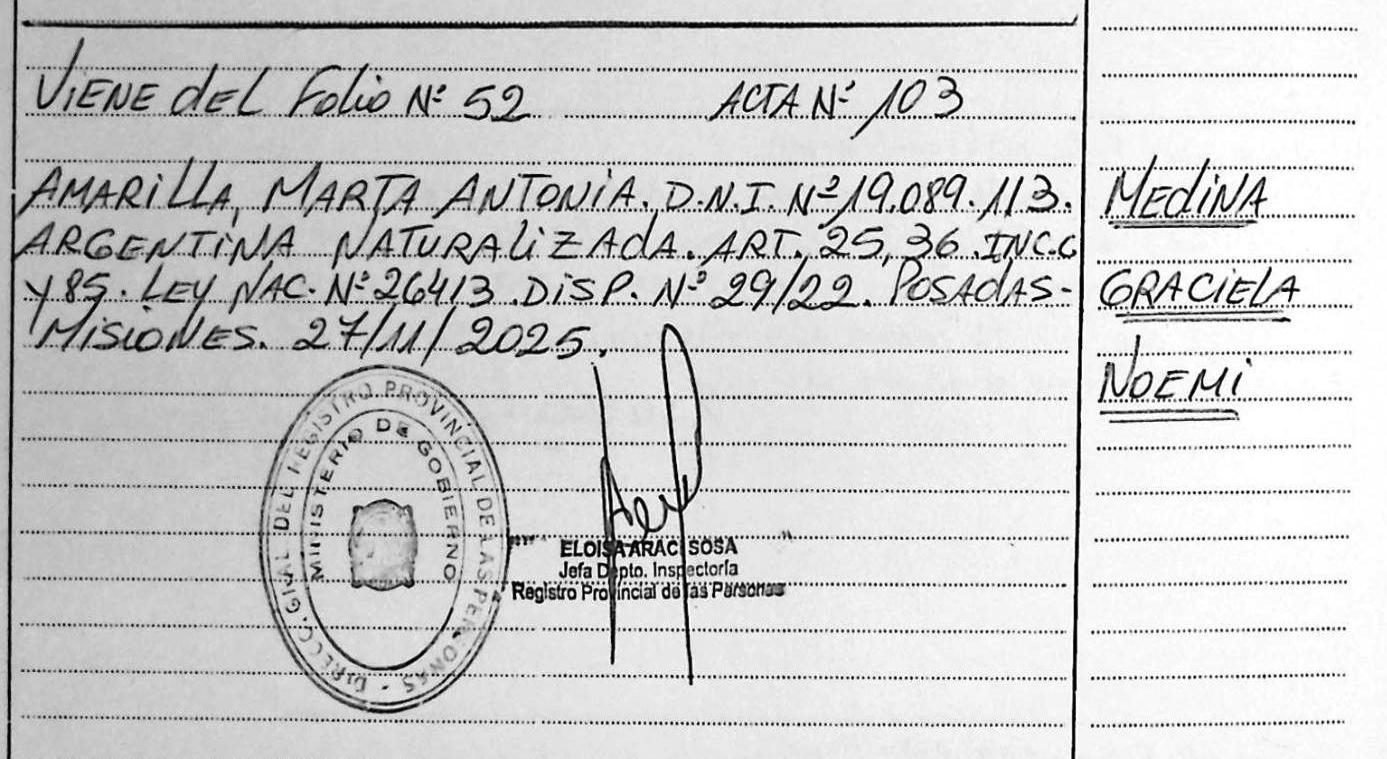 VIENE del Folio Nº 52 ACTA Nº 103
AMARILLA, MARTA ANTONIA. D.N.I. Nº 19.089.113.
ARGENTINA NATURALIZADA. ART. 25, 36 INC.C
Y 85. LEY NAC. Nº 26413. DISP. Nº 29/22. POSADAS-
MISIONES. 27/11/2025.
MEDINA
GRACIELA
NOEMI
DIRECC. GRAL DEL REGISTRO PROVINCIAL DE LAS PERSONAS -
MINISTERIO DE GOBIERNO
ELOISA ARACI SOSA
Jefa Depto. Inspectoría
Registro Provincial de las Personas